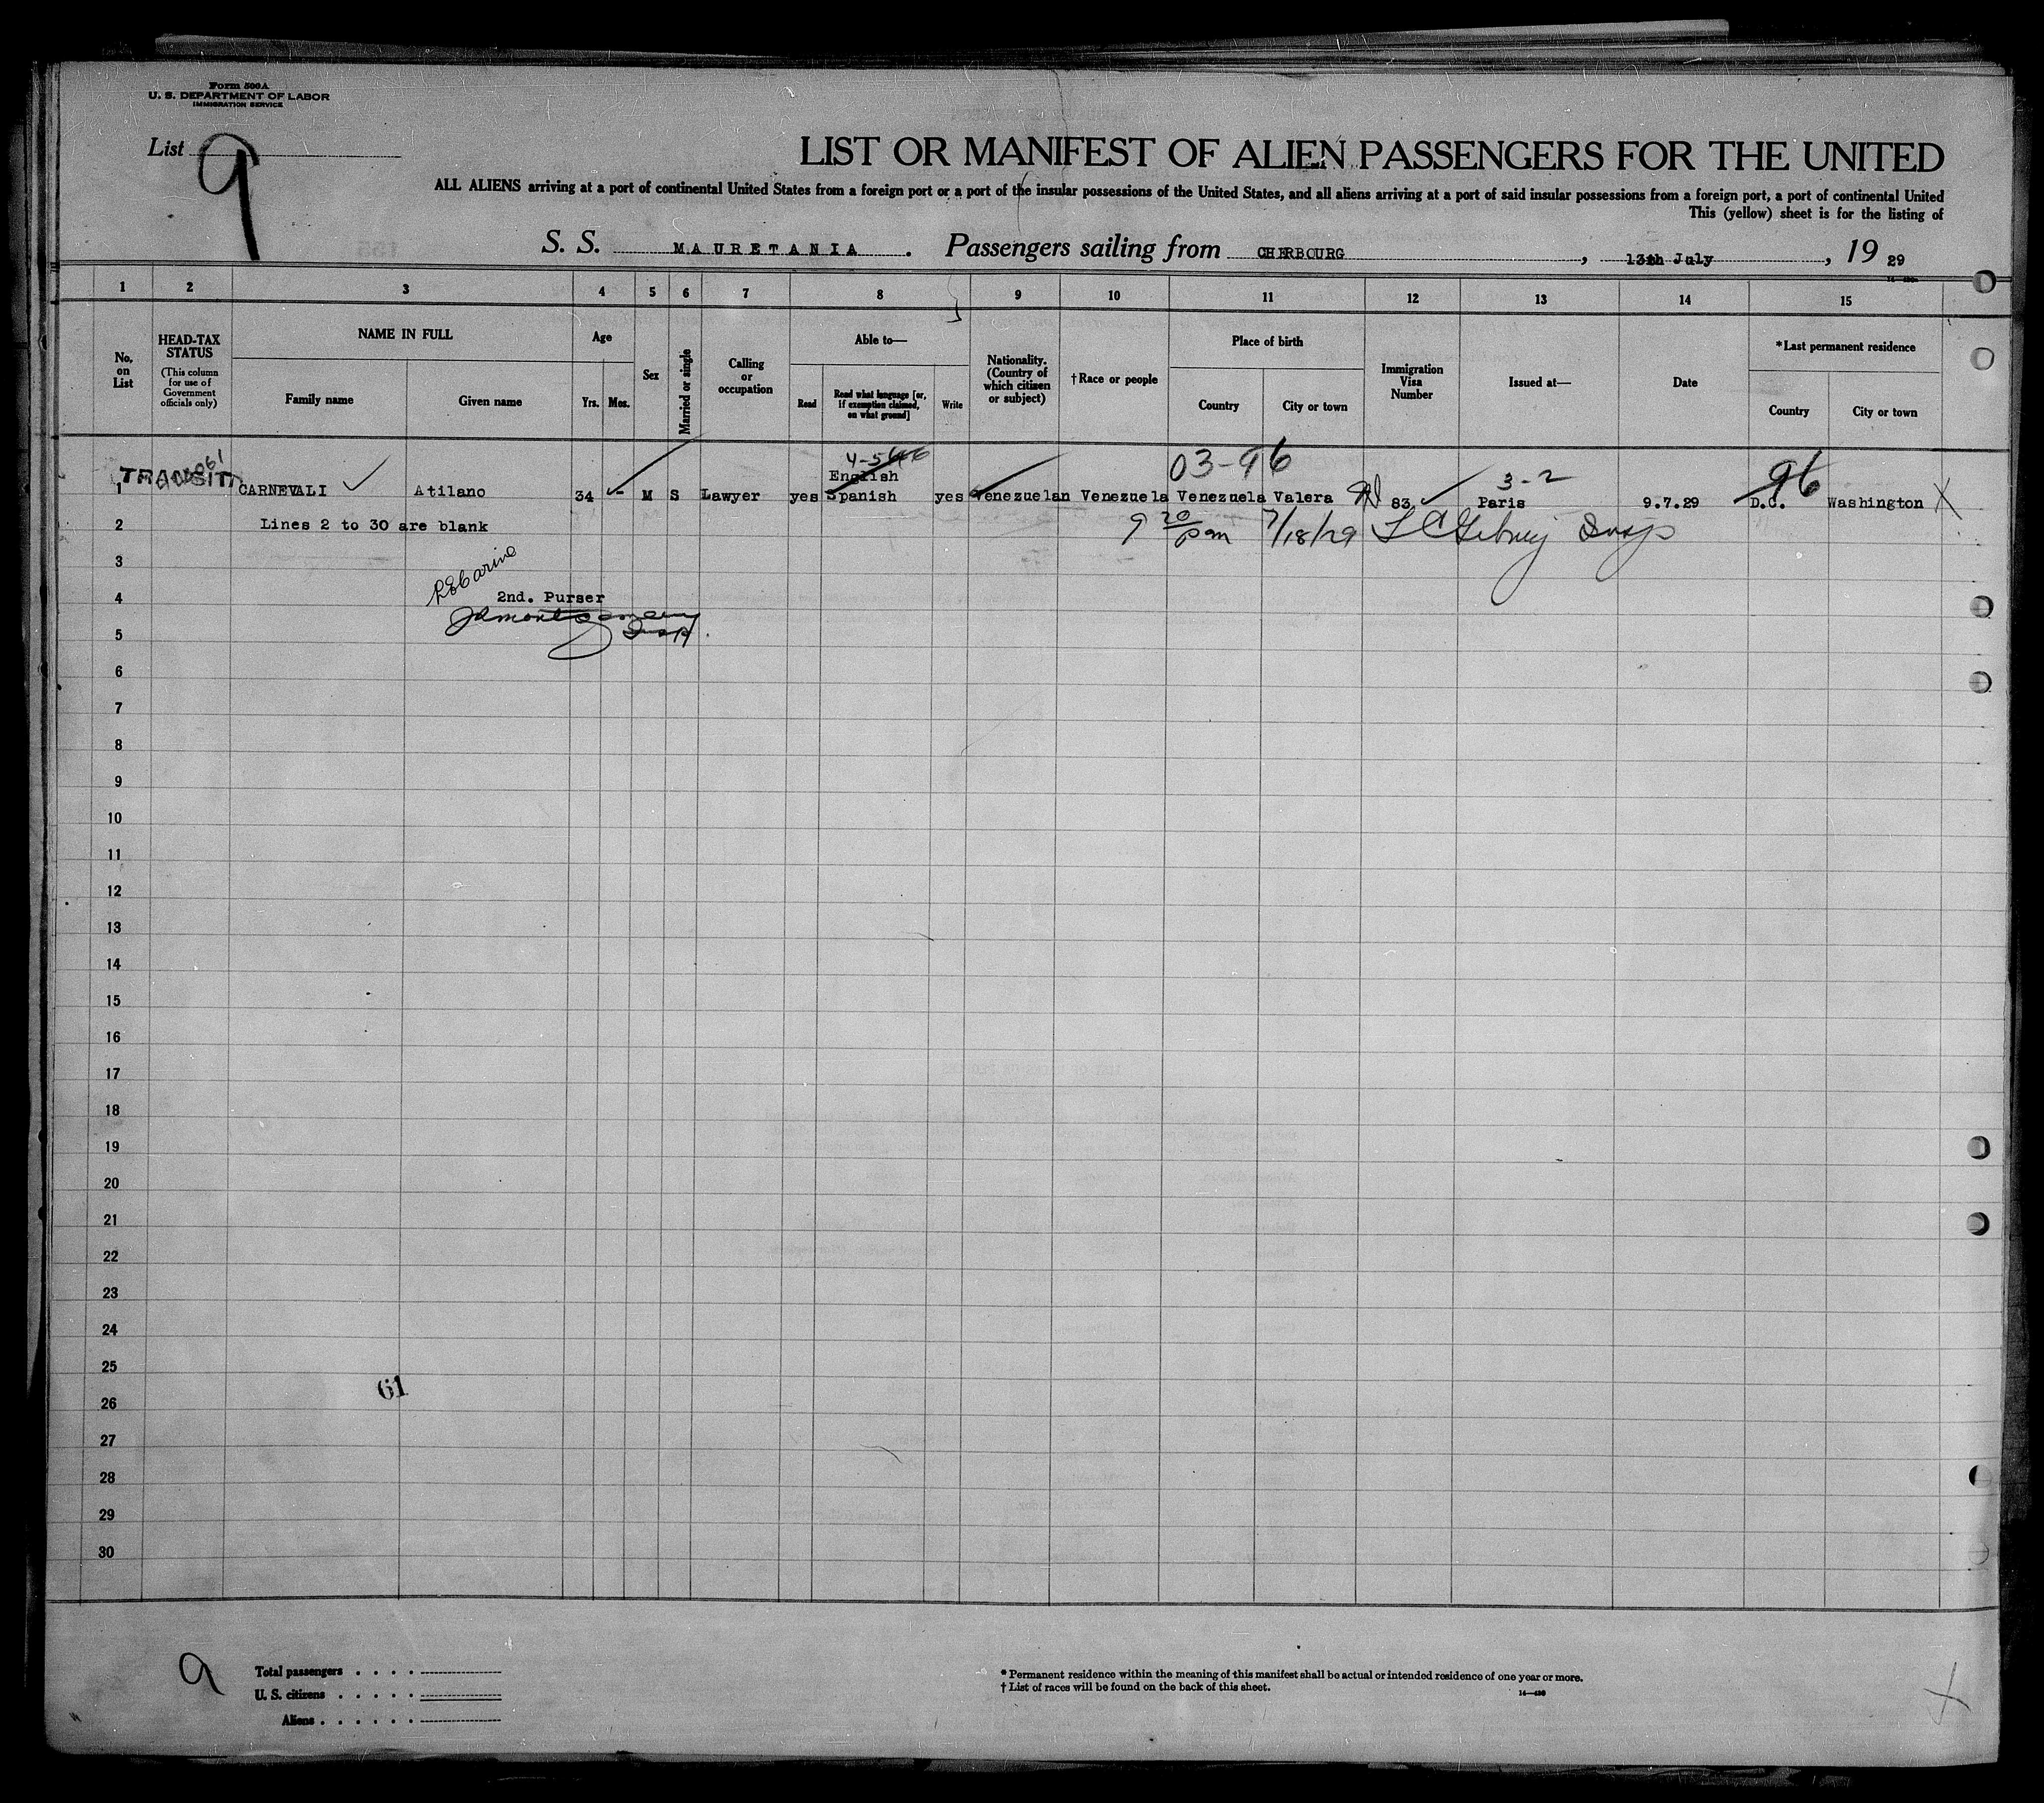 Form 500A
U. S. DEPARTMENT OF LABOR
IMMIGRATION SERVICE
List 9
LIST OR MANIFEST OF ALIEN PASSENGERS FOR THE UNITED
ALL ALIENS arriving at a port of continental United States from a foreign port or a port of the insular possessions of the United States, and all aliens arriving at a port of said insular possessions from a foreign port, a port of continental United
This (yellow) sheet is for the listing of
S. S. MAURETANIA. Passengers sailing from CHERBOURG, 13th July, 19 29
1 2 3 4 5 6 7 8 9 10 11 12 13 14 15
No. on List
HEAD-TAX STATUS (This column for use of Government officials only)
NAME IN FULL
Family name Given name
Age
Yrs. Mos.
Sex
Married or single
Calling or occupation
Able to—
Read Read what language [or, if exemption claimed, on what ground] Write
Nationality. (Country of which citizen or subject)
†Race or people
Place of birth
Country City or town
Immigration Visa Number
Issued at—
Date
*Last permanent residence
Country City or town
4-5 03-96 3-2 96
TRANSIT English
1 CARNEVALI Atilano 34 - M S Lawyer yes Spanish yes Venezuelan Venezuela Venezuela Valera 83 Paris 9.7.29 D.C. Washington X
2 Lines 2 to 30 are blank 9 20 pm 7/18/29
3
4 2nd. Purser
5
6
7
8
9
10
11
12
13
14
15
16
17
18
19
20
21
22
23
24
25
61
26
27
28
29
30
9
Total passengers . . . .
U. S. citizens . . . . .
Aliens . . . . . .
* Permanent residence within the meaning of this manifest shall be actual or intended residence of one year or more.
† List of races will be found on the back of this sheet.
X